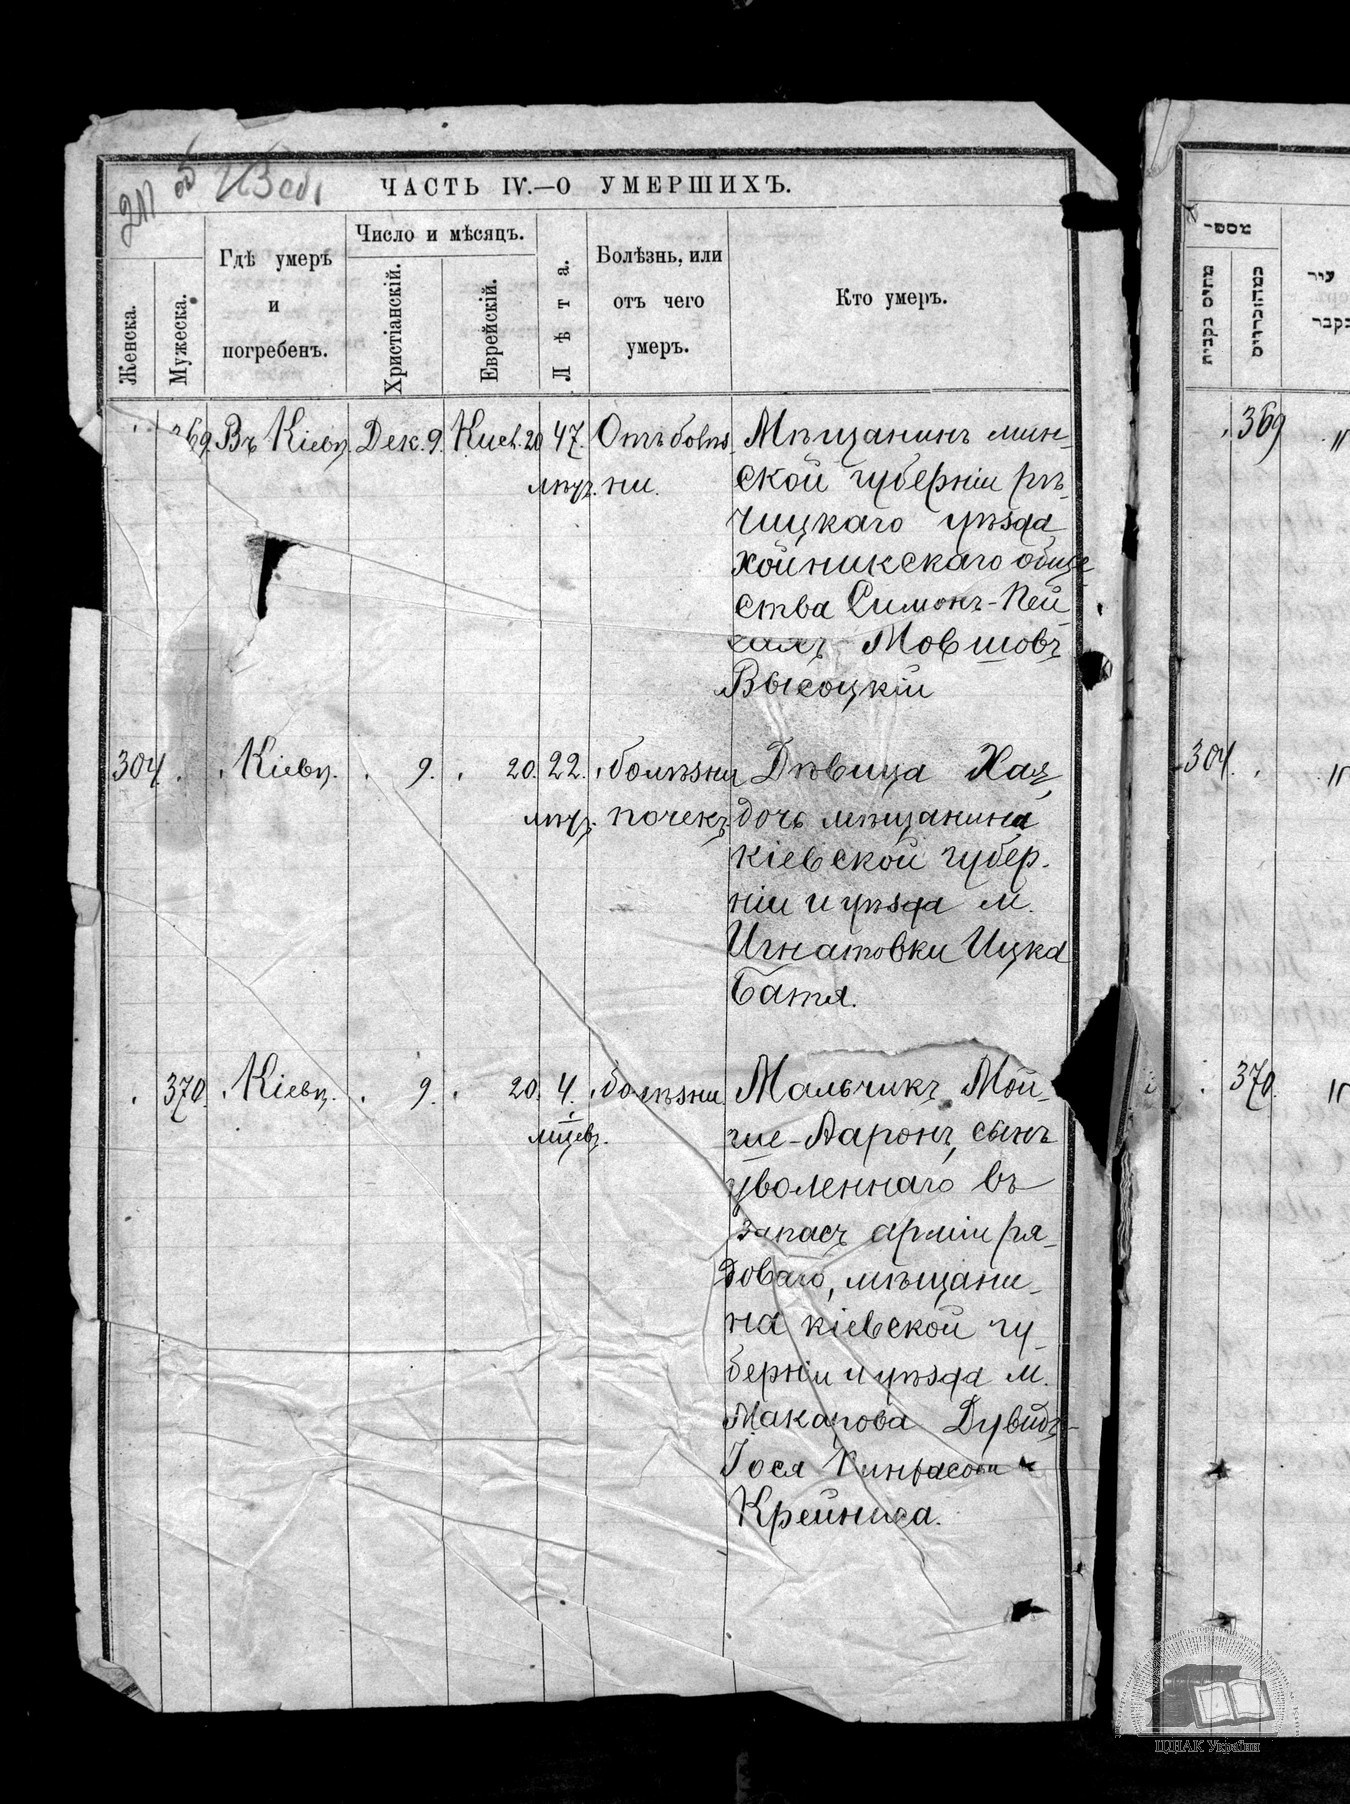 ЧАСТЬ IV.—О УМЕРШИХЪ.
Женска.
Мужеска.
Гдѣ умеръ
и
погребенъ.
Число и мѣсяцъ.
Христіанскій.
Еврейскій.
Лѣта.
Болѣзнь, или
отъ чего
умеръ.
Кто умеръ.
369. Въ Кіевѣ. Дек. 9. Кисл. 20 47. Отъ болѣз- Мѣщанинъ мин-
лѣтъ. ни. ской губерніи рѣ-
чицкаго уѣзда
хойникскаго обще-
ства Симонъ-Пей-
сахъ Мовшовъ
Высоцкій
304. Кіевѣ. 9. 20. 22. болѣзни Дѣвица Хая,
лѣтъ. почекъ дочь мѣщанина
кіевской губер-
ніи и уѣзда м.
Игнатовки Ицка
Батя.
370. Кіевѣ. 9. 20. 4. болѣзни. Мальчикъ Мой-
мцевъ. ше-Ааронъ, сынъ
уволеннаго въ
запасъ арміи ря-
доваго, мѣщани-
на кіевской гу-
берніи и уѣзда м.
Макарова Дувидъ-
Іося Пинхасова
Крейниса.
מספר
369
304.
370.
ЦНАК України